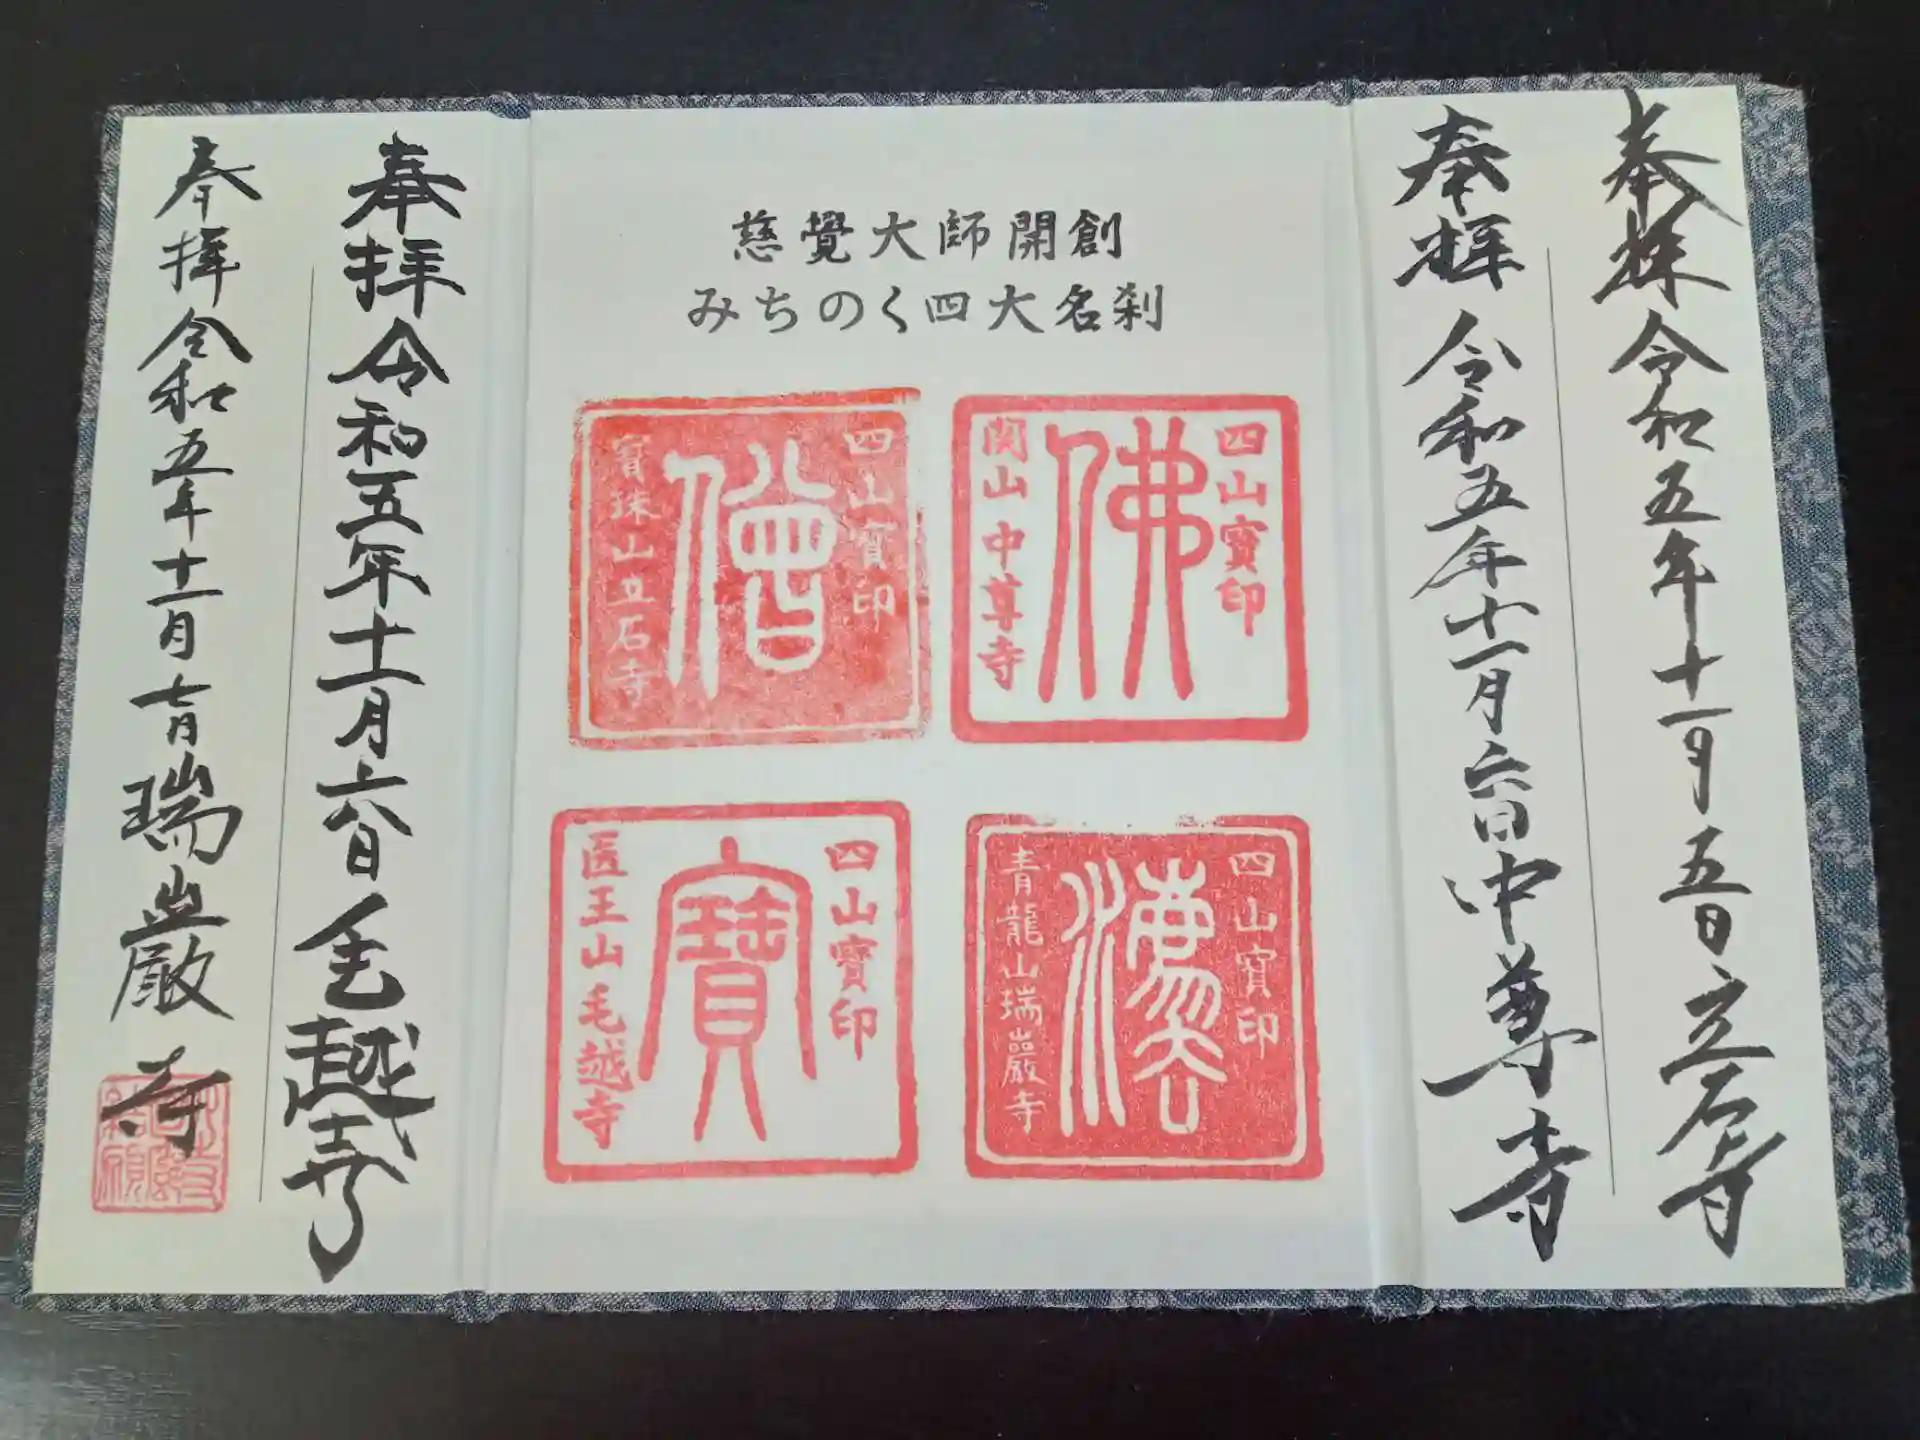 奉拝 令和五年十一月五日 立石寺
奉拝 令和五年十一月六日 中尊寺
慈覺大師開創
みちのく四大名刹
四山寶印
佛
関山中尊寺
四山寶印
僧
寳珠山立石寺
四山寳印
青龍山瑞巖寺
四山寶印
寶
医王山毛越寺
奉拝 令和五年十一月六日 毛越寺
奉拝 令和五年十一月七日 瑞巌寺